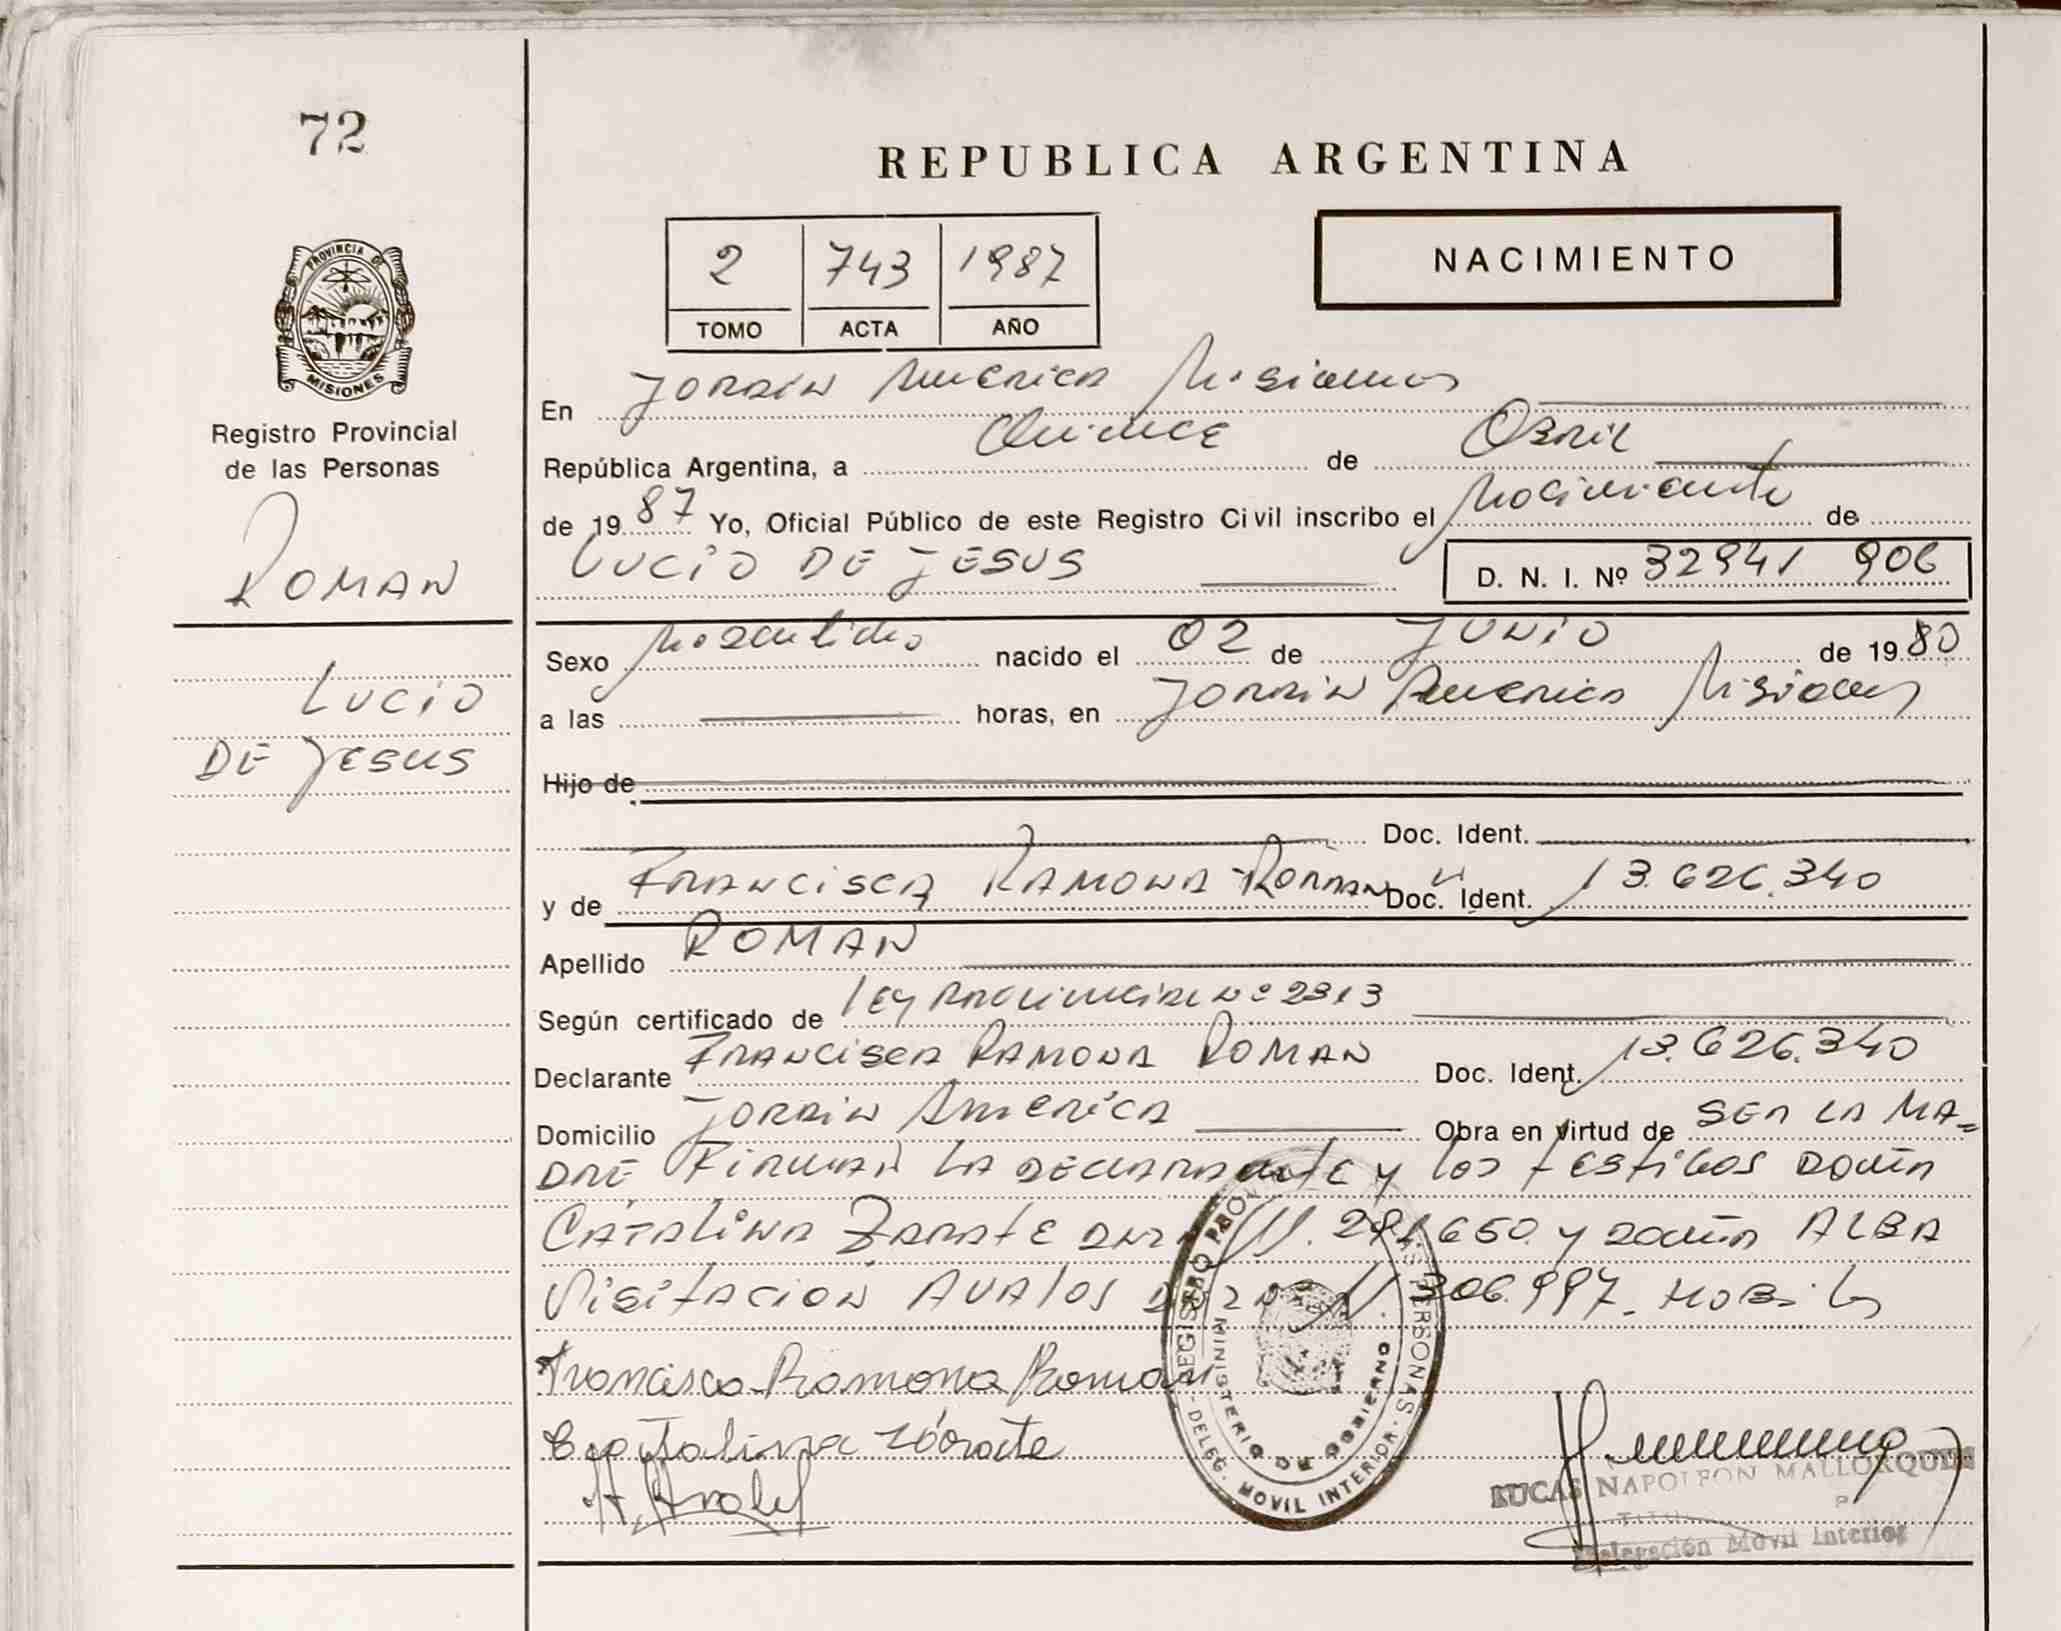 72
REPUBLICA ARGENTINA
2 743 1987
TOMO ACTA AÑO
NACIMIENTO
PROVINCIA DE
MISIONES
Registro Provincial
de las Personas
ROMAN
LUCIO
DE JESUS
En Jardin America Misiones
República Argentina, a Quince de Abril
de 1987 Yo, Oficial Público de este Registro Civil inscribo el Nacimiento de
LUCIO DE JESUS D. N. I. Nº 32941 906
Sexo Masculino nacido el 02 de JUNIO de 1980
a las horas, en Jardin America Misiones
Hijo de
Doc. Ident.
y de FRANCISCA RAMONA ROMAN Doc. Ident. 13.626.340
Apellido ROMAN
Según certificado de Ley Provincial Nº 2313
Declarante FRANCISCA RAMONA ROMAN Doc. Ident. 13.626.340
Domicilio Jardin America Obra en virtud de SER LA MA=
DRE Firman LA DECLARANTE y los testigos doña
CATALINA Zarate DNI 650 y doña ALBA
Visitacion AVALOS 306.997.
Francisca Ramona Roman
Catalina Zárate
REGISTRO PERSONAS
MINISTERIO DE GOBIERNO
DELEG. MOVIL INTERIOR
LUCAS NAPOLEON MALLORQUIN
Delegación Movil Interior